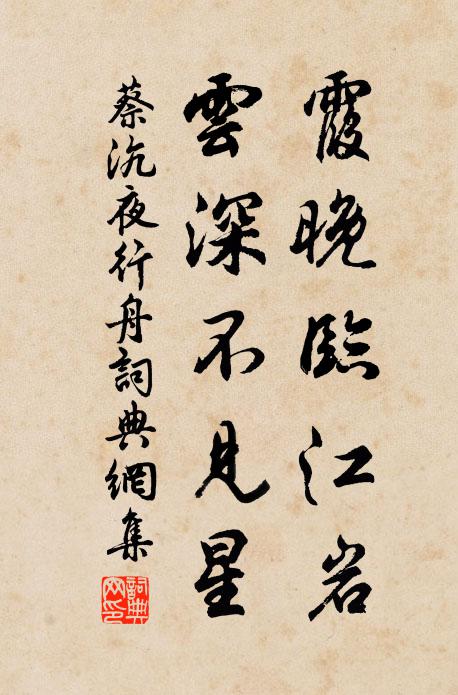 霞晚臨江岩
雲深不見星
蔡沉夜行舟詞典網集
詞典网印